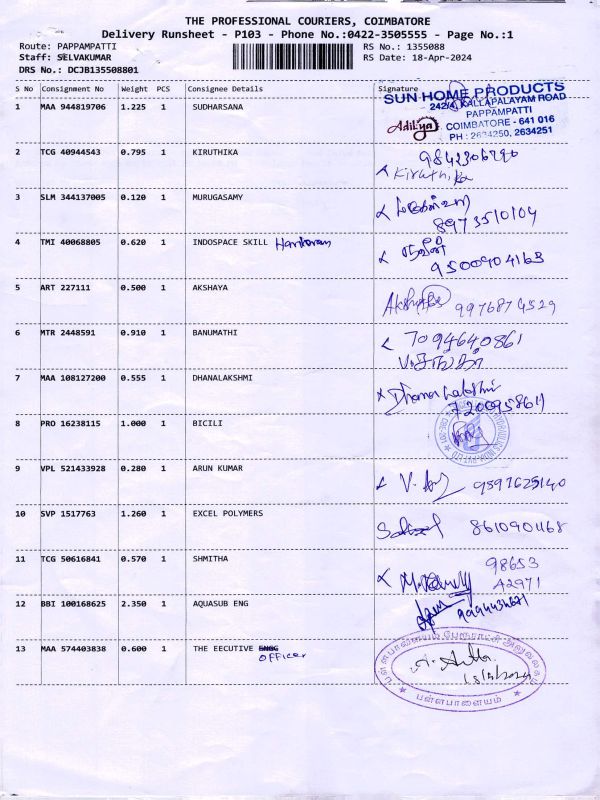 THE PROFESSIONAL COURIERS, COIMBATORE
Delivery Runsheet - P103 - Phone No.:0422-3505555 - Page No.:1
Route: PAPPAMPATTI RS No.: 1355088
Staff: SELVAKUMAR RS Date: 18-Apr-2024
DRS No.: DCJB135508801
S No Consignment No Weight PCS Consignee Details Signature
SUN HOME PRODUCTS
1 MAA 944819706 1.225 1 SUDHARSANA 242/4, KALLAPALAYAM ROAD
PAPPAMPATTI
Adithya COIMBATORE - 641 016
PH : 2634250, 2634251
2 TCG 40944543 0.795 1 KIRUTHIKA
Kiruthika
3 SLM 344137005 0.120 1 MURUGASAMY
8973510104
4 TMI 40068805 0.620 1 INDOSPACE SKILL Hariharan
9500904163
5 ART 227111 0.500 1 AKSHAYA Akshaya 9976874529
6 MTR 2448591 0.910 1 BANUMATHI 7094640861
7 MAA 108127200 0.555 1 DHANALAKSHMI Dhanalakshmi
7200958611
8 PRO 16238115 1.000 1 BICILI
9 VPL 521433928 0.280 1 ARUN KUMAR 9597625140
10 SVP 1517763 1.260 1 EXCEL POLYMERS 8610901168
11 TCG 50616841 0.570 1 SHMITHA 98653
42971
12 BBI 100168625 2.350 1 AQUASUB ENG
13 MAA 574403838 0.600 1 THE EECUTIVE ENGG
OFFicer
பள்ளபாளையம் பேரூராட்சி அலுவலகம்
பள்ளபாளையம்